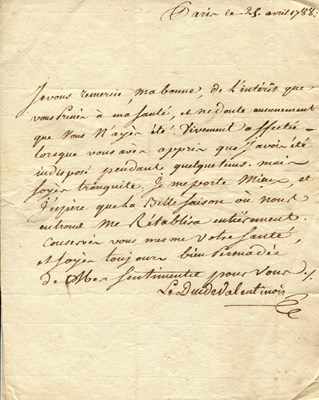 Paris le 25. avril 1788.
Je vous remercie, ma bonne, de l'intérêt que
vous Prenés à ma santé, et ne doute aucunement
que Vous N'ayés été Vivement affectée
lorsque vous avés appris que J'avois été
indisposé pendant quelque tems. mais
soyés tranquille, Je me porte Mieux, et
J'espère que la Belle saison où nous
entrons me Rétablira entièrement.
Conservés vous mesme Votre santé,
et soyés toujours bien persuadée
de Mes sentimentes pour Vous ./.
Le Duc de Valentinois